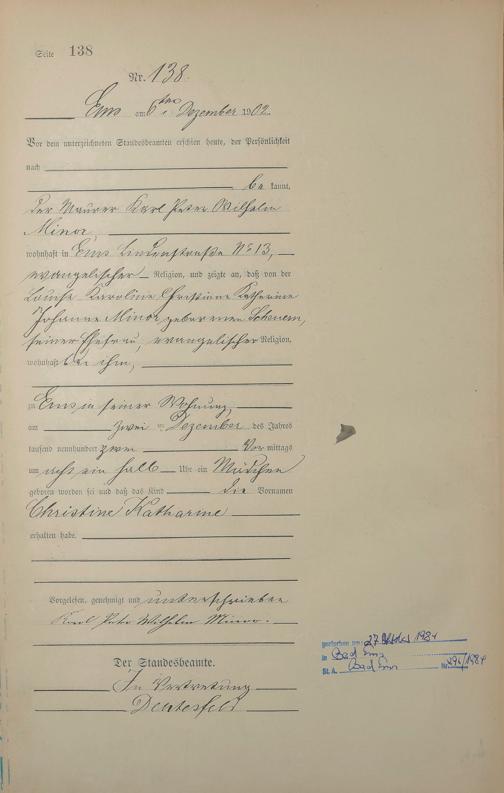 Seite 138
Nr. 138.
Ems am 6ten Dezember 1902.
Vor dem unterzeichneten Standesbeamten erschien heute, der Persönlichkeit
nach
be kannt,
der Maurer Karl Peter Wilhelm
Minor,
wohnhaft in Ems Lindenstraße No 13,
evangelischer Religion, und zeigte an, daß von der
Louise Karoline Christiane Katharine
Johanne Minor, geborenen
seiner Ehefrau, evangelischer Religion,
wohnhaft bei ihm,
zu Ems, in seiner Wohnung,
am zwei ten Dezember des Jahres
tausend neunhundert zwei Vor mittags
um acht ein halb Uhr ein Mädchen
geboren worden sei und daß das Kind die Vornamen
Christine Katharine
erhalten habe.
Vorgelesen, genehmigt und unterschrieben
Karl Peter Wilhelm Minor.
Der Standesbeamte.
In Vertretung
gestorben am: 27 Oktober 1984
in Bad Ems
St. A. Bad Ems Nr.